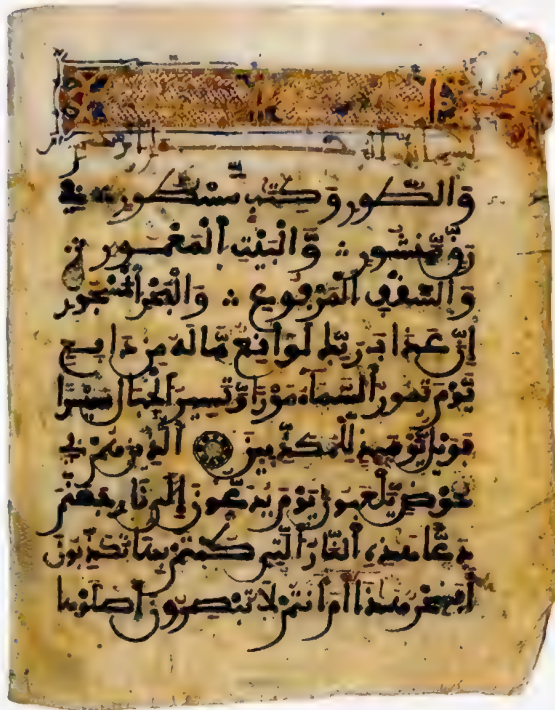 بسم الله الرحمن الرحيم
وَالطُّورِ وَكِتَٰبٍ مَّسْطُورٍ فِے
رَقٍّ مَّنشُورٍ وَالْبَيْتِ الْمَعْمُورِ
وَالسَّقْفِ الْمَرْفُوعِ وَالْبَحْرِ الْمَسْجُورِ
إِنَّ عَذَابَ رَبِّكَ لَوَٰقِعٌ مَّا لَهُ مِن دَافِعٍ
يَوْمَ تَمُورُ السَّمَآءُ مَوْرًا وَتَسِيرُ الْجِبَالُ سَيْرًا
فَوَيْلٌ يَوْمَئِذٍ لِّلْمُكَذِّبِينَ الَّذِينَ هُمْ فِے
خَوْضٍ يَلْعَبُونَ يَوْمَ يُدَعُّونَ إِلَىٰ نَارِ جَهَنَّمَ
دَعًّا هَٰذِهِ النَّارُ الَّتِے كُنتُم بِهَا تُكَذِّبُونَ
أَفَسِحْرٌ هَٰذَا أَمْ أَنتُمْ لَا تُبْصِرُونَ اصْلَوْهَا